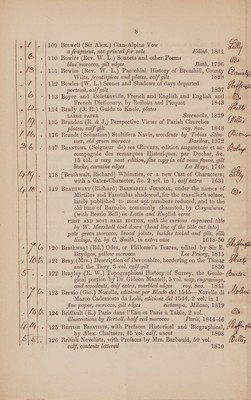 8
109 Boswell (Sir Alex.) Clan-Alpins Vow
a fragment, not printed for sale Edinb. 1811
110 Bowles (Rev. W. L.) Sonnets and other Poems
blue morocco, gilt edges Bath, 1796
111 Bowles (Rev. W. L.) Parochial History of Bremhill, County
Wilts, frontispiece and plates, calf gilt 1828
112 Bowles (W. L.) Scenes and Shadows of days departed
portrait, calf gilt 1837
113 Boyer and Deletanville, French and English and English and
French Dictionary, by Boileau and Picquot 1843
114 Brady (J. H.) Guide to Knole, plates
LARGE PAPER Sevenoaks, 1839
115 Brandon (R. & J.) Perspective Views of Parish Churches
plates, calf gilt roy. 8vo. 1848
116 Brandt (Sebastian) Stultifera Navis, woodcuts by Tobias Stim-
mer, old green morocco Basileæ, 1572
117 BRANTOME (Seigneur de) ses ŒUVRES, edition augmentée et ac-
compagnée des remarques Historiques, par Duchat, &c.
15 vol. a very neat edition, fine copy in old calf fauve, gilt
backs, carmine edges La Haye, 1741
118 [Brathwait, Richard] Whimzies, or a new Cast of Characters;
with a Cater-Character, &c. 2 vol. in 1, calf extra 1631
119 BRATHWAIT (Richard) BARNABEES JOURNAL, under the names of
Mirtilus and Faustulus shadowed, for the traveller's solace,
lately published to most apt numbers reduced, and to the
old tune of Barnabe commonly chaunted, by Corymbœus,
(with Bessie Bell) in Latin and English verse
FIRST AND MOST RARE EDITION, with the curious engraved title
by W. Marshall laid down (head line of the title cut into)
pale green morocco, broad joints, inside tooled and gilt, silk
linings, &c. by C. Smith, in extra case 1648-50
120 Brathwayt (Rd.) Odes, or Philomel's Teares, edited by Sir E.
Brydges, yellow morocco Lee Priory, 1815
121 Bray (Mrs.) Description of Devonshire, bordering on the Tamar
and the Tavy, 3 vol. calf gilt 1838
122 Brayley (E. W.) Topographical History of Surrey, the Geolo-
gical portion by Dr. Gideon Mantell, 5 vol. map, engravings,
and woodcuts, calf extra, marbled edges roy. 8vo. 1841
123 Brevio (Gio.) Novelle, edizione per Blado del 1545—Novelle di
Marco Cademosto da Lodi, edizione del 1544, 2 vol. in 1
fine paper, morocco, gilt edges ristampa, Milano, 1819
124 Briffault (E.) Paris dans l'Eau et Paris à Table, 2 vol.
illustrations by Bertall, half red morocco Paris, 1844-46
125 BRITISH ESSAYISTS, with Prefaces Historical and Biographical,
by Alex. Chalmers, 45 vol. calf, uncut 1808
126 British Novelists, with Prefaces by Mrs. Barbauld, 50 vol.
calf, contents lettered 1810